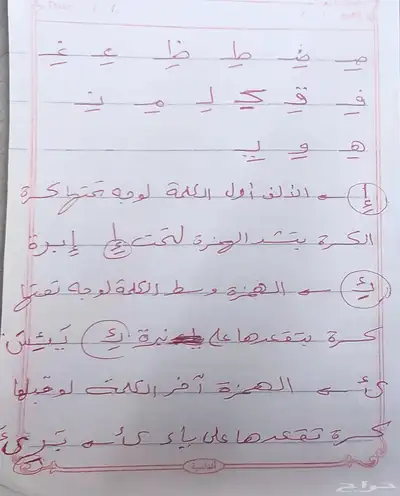 صِ ضِ طِ ظِ عِ غِ
فِ قِ كِ لِ مِ نِ
هِ وِ يِ
إِ ← الألف أول الكلمة لو جه تحتها كسرة
الكسرة بتشد الهمزة لتحت إِ إِبرة
ئِ ← الهمزة وسط الكلمة لو جه تحتها
كسرة بتقعدها على نبرة ئِ يَئِسَ
ئ ← الهمزة آخر الكلمة لو قبلها
كسرة تقعدها على ياء ئ ← بَرِئَ
حراج